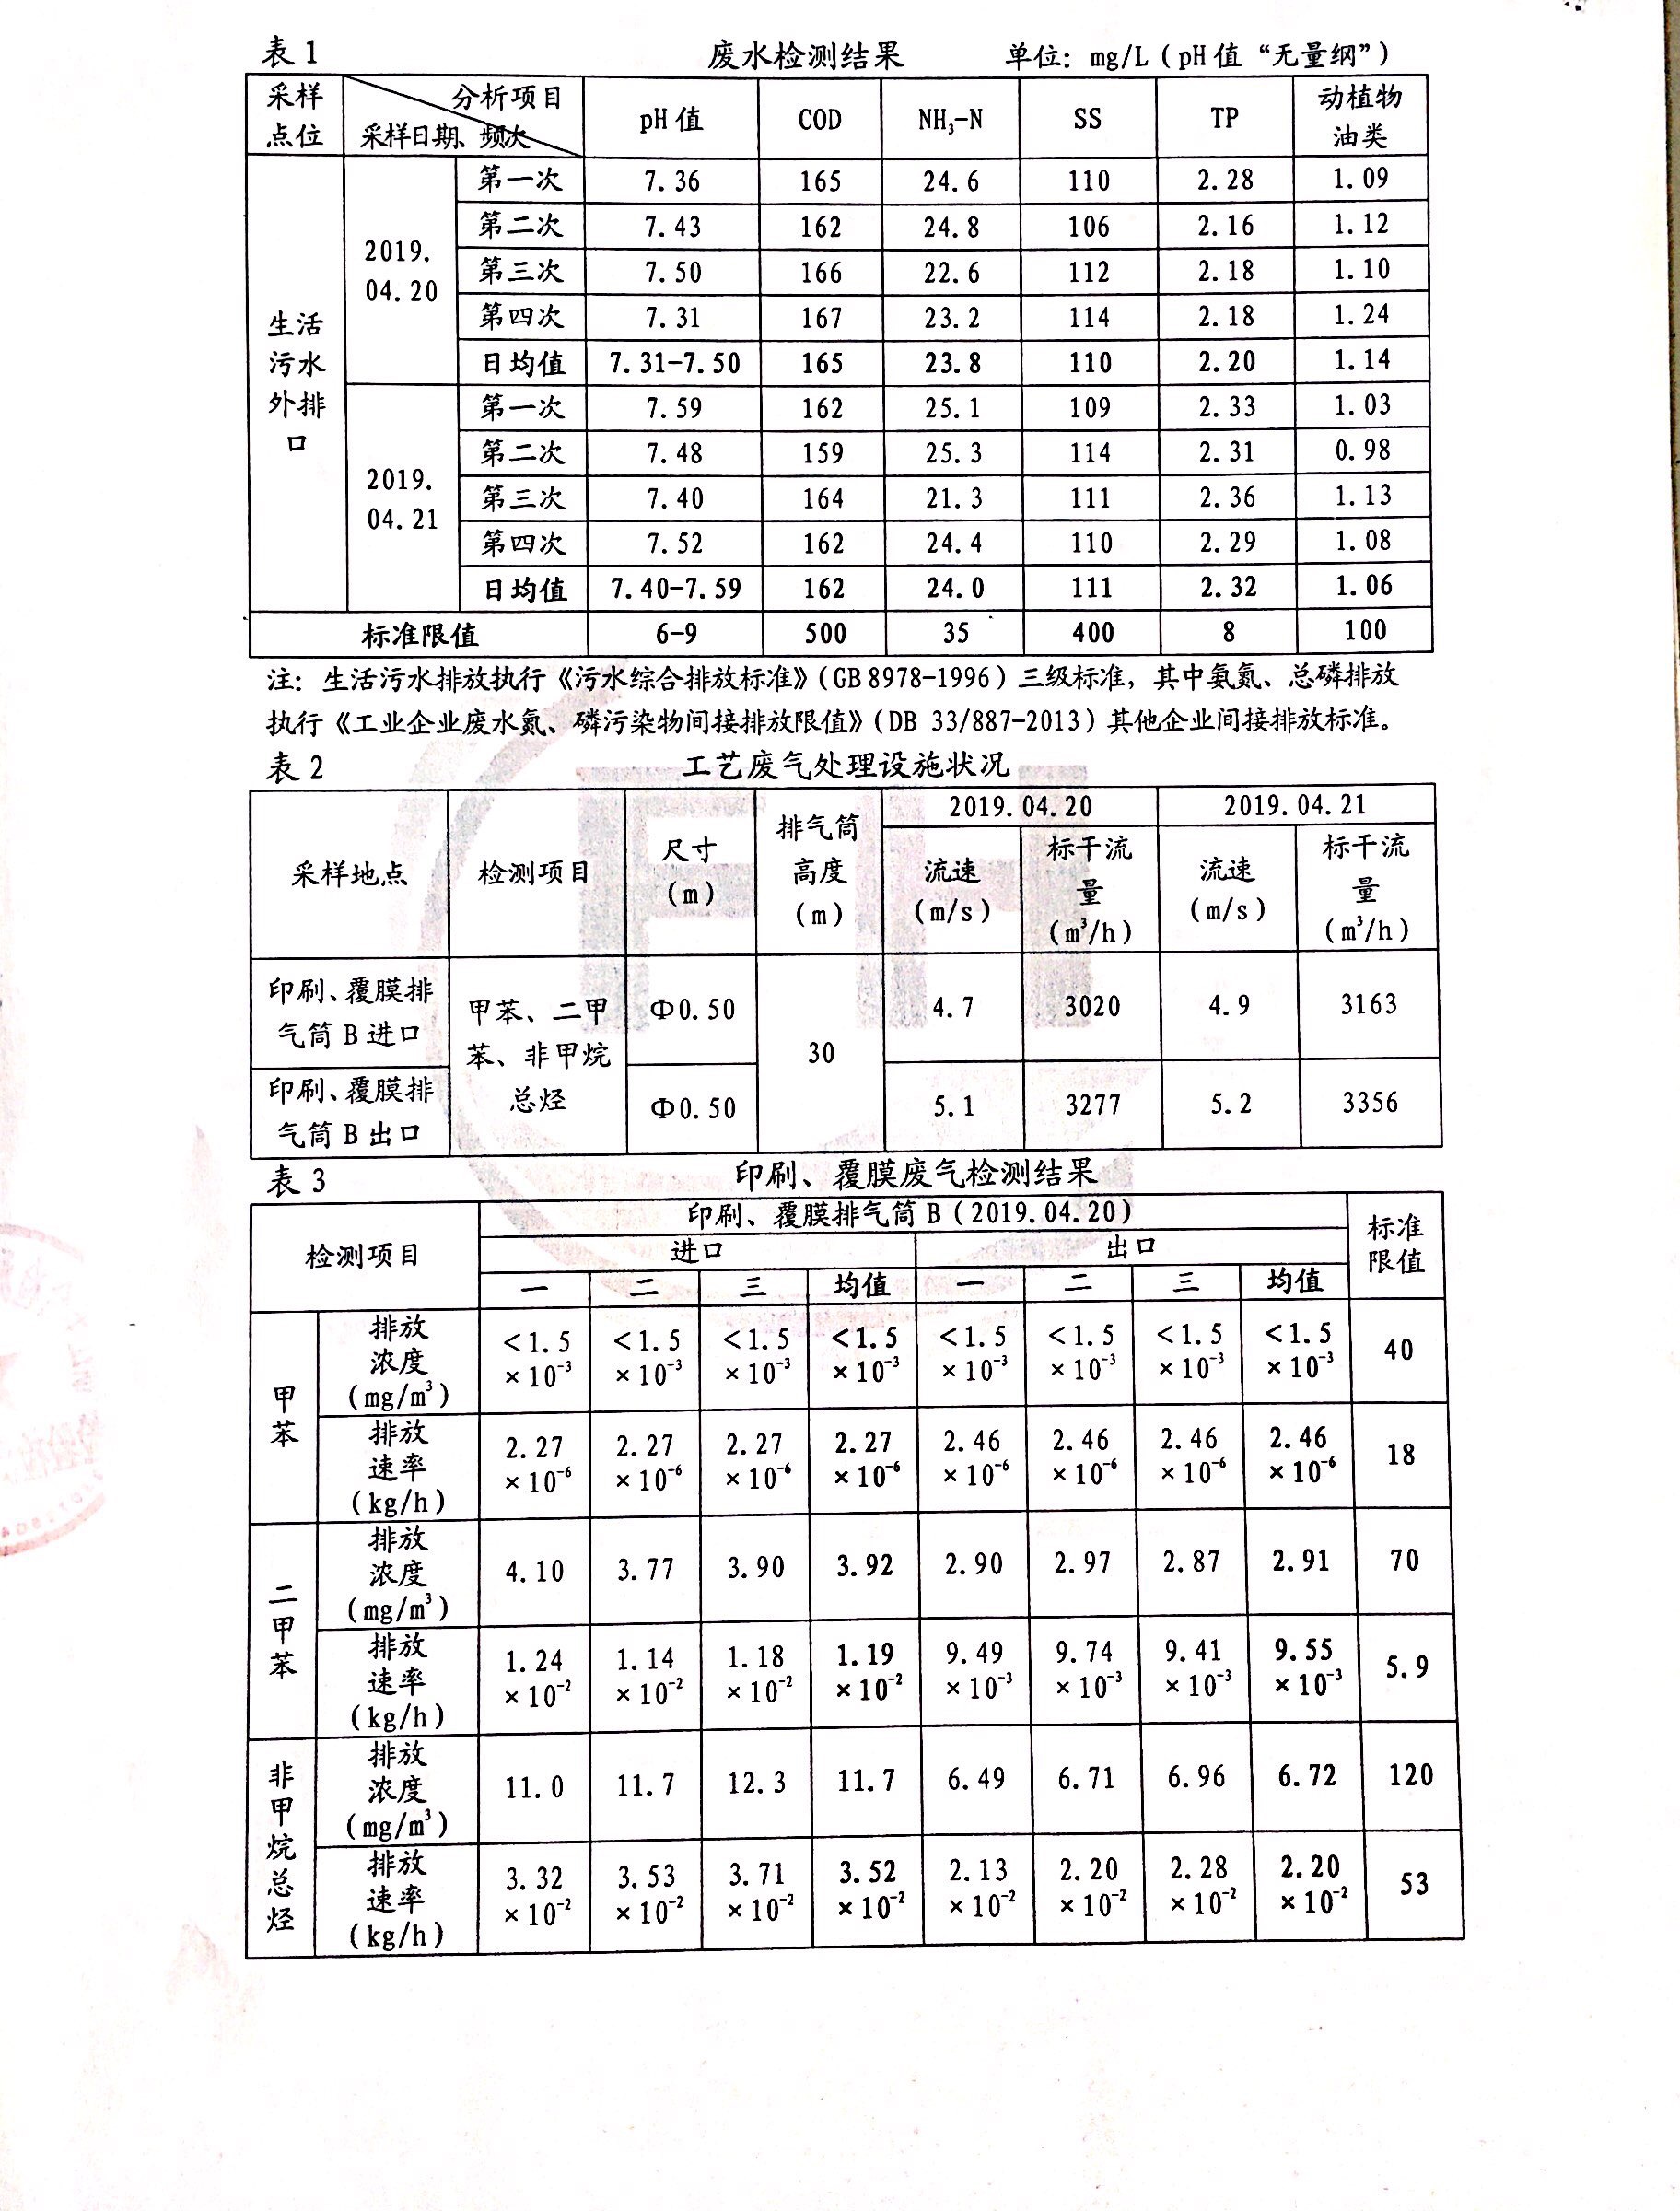 表1 废水检测结果 单位：mg/L（pH值“无量纲”）
采样点位 分析项目 采样日期、频次 pH值 COD NH₃-N SS TP 动植物油类
生活污水外排口 2019.04.20 第一次 7.36 165 24.6 110 2.28 1.09
第二次 7.43 162 24.8 106 2.16 1.12
第三次 7.50 166 22.6 112 2.18 1.10
第四次 7.31 167 23.2 114 2.18 1.24
日均值 7.31-7.50 165 23.8 110 2.20 1.14
2019.04.21 第一次 7.59 162 25.1 109 2.33 1.03
第二次 7.48 159 25.3 114 2.31 0.98
第三次 7.40 164 21.3 111 2.36 1.13
第四次 7.52 162 24.4 110 2.29 1.08
日均值 7.40-7.59 162 24.0 111 2.32 1.06
标准限值 6-9 500 35 400 8 100
注：生活污水排放执行《污水综合排放标准》（GB 8978-1996）三级标准，其中氨氮、总磷排放
执行《工业企业废水氮、磷污染物间接排放限值》（DB 33/887-2013）其他企业间接排放标准。
表2 工艺废气处理设施状况
采样地点 检测项目 尺寸(m) 排气筒高度(m) 2019.04.20 2019.04.21
流速(m/s) 标干流量(m³/h) 流速(m/s) 标干流量(m³/h)
印刷、覆膜排气筒B进口 甲苯、二甲苯、非甲烷总烃 Φ0.50 30 4.7 3020 4.9 3163
印刷、覆膜排气筒B出口 Φ0.50 5.1 3277 5.2 3356
表3 印刷、覆膜废气检测结果
检测项目 印刷、覆膜排气筒B（2019.04.20） 标准限值
进口 出口
一 二 三 均值 一 二 三 均值
甲苯 排放浓度(mg/m³) <1.5×10⁻³ <1.5×10⁻³ <1.5×10⁻³ <1.5×10⁻³ <1.5×10⁻³ <1.5×10⁻³ <1.5×10⁻³ <1.5×10⁻³ 40
排放速率(kg/h) 2.27×10⁻⁶ 2.27×10⁻⁶ 2.27×10⁻⁶ 2.27×10⁻⁶ 2.46×10⁻⁶ 2.46×10⁻⁶ 2.46×10⁻⁶ 2.46×10⁻⁶ 18
二甲苯 排放浓度(mg/m³) 4.10 3.77 3.90 3.92 2.90 2.97 2.87 2.91 70
排放速率(kg/h) 1.24×10⁻² 1.14×10⁻² 1.18×10⁻² 1.19×10⁻² 9.49×10⁻³ 9.74×10⁻³ 9.41×10⁻³ 9.55×10⁻³ 5.9
非甲烷总烃 排放浓度(mg/m³) 11.0 11.7 12.3 11.7 6.49 6.71 6.96 6.72 120
排放速率(kg/h) 3.32×10⁻² 3.53×10⁻² 3.71×10⁻² 3.52×10⁻² 2.13×10⁻² 2.20×10⁻² 2.28×10⁻² 2.20×10⁻² 53